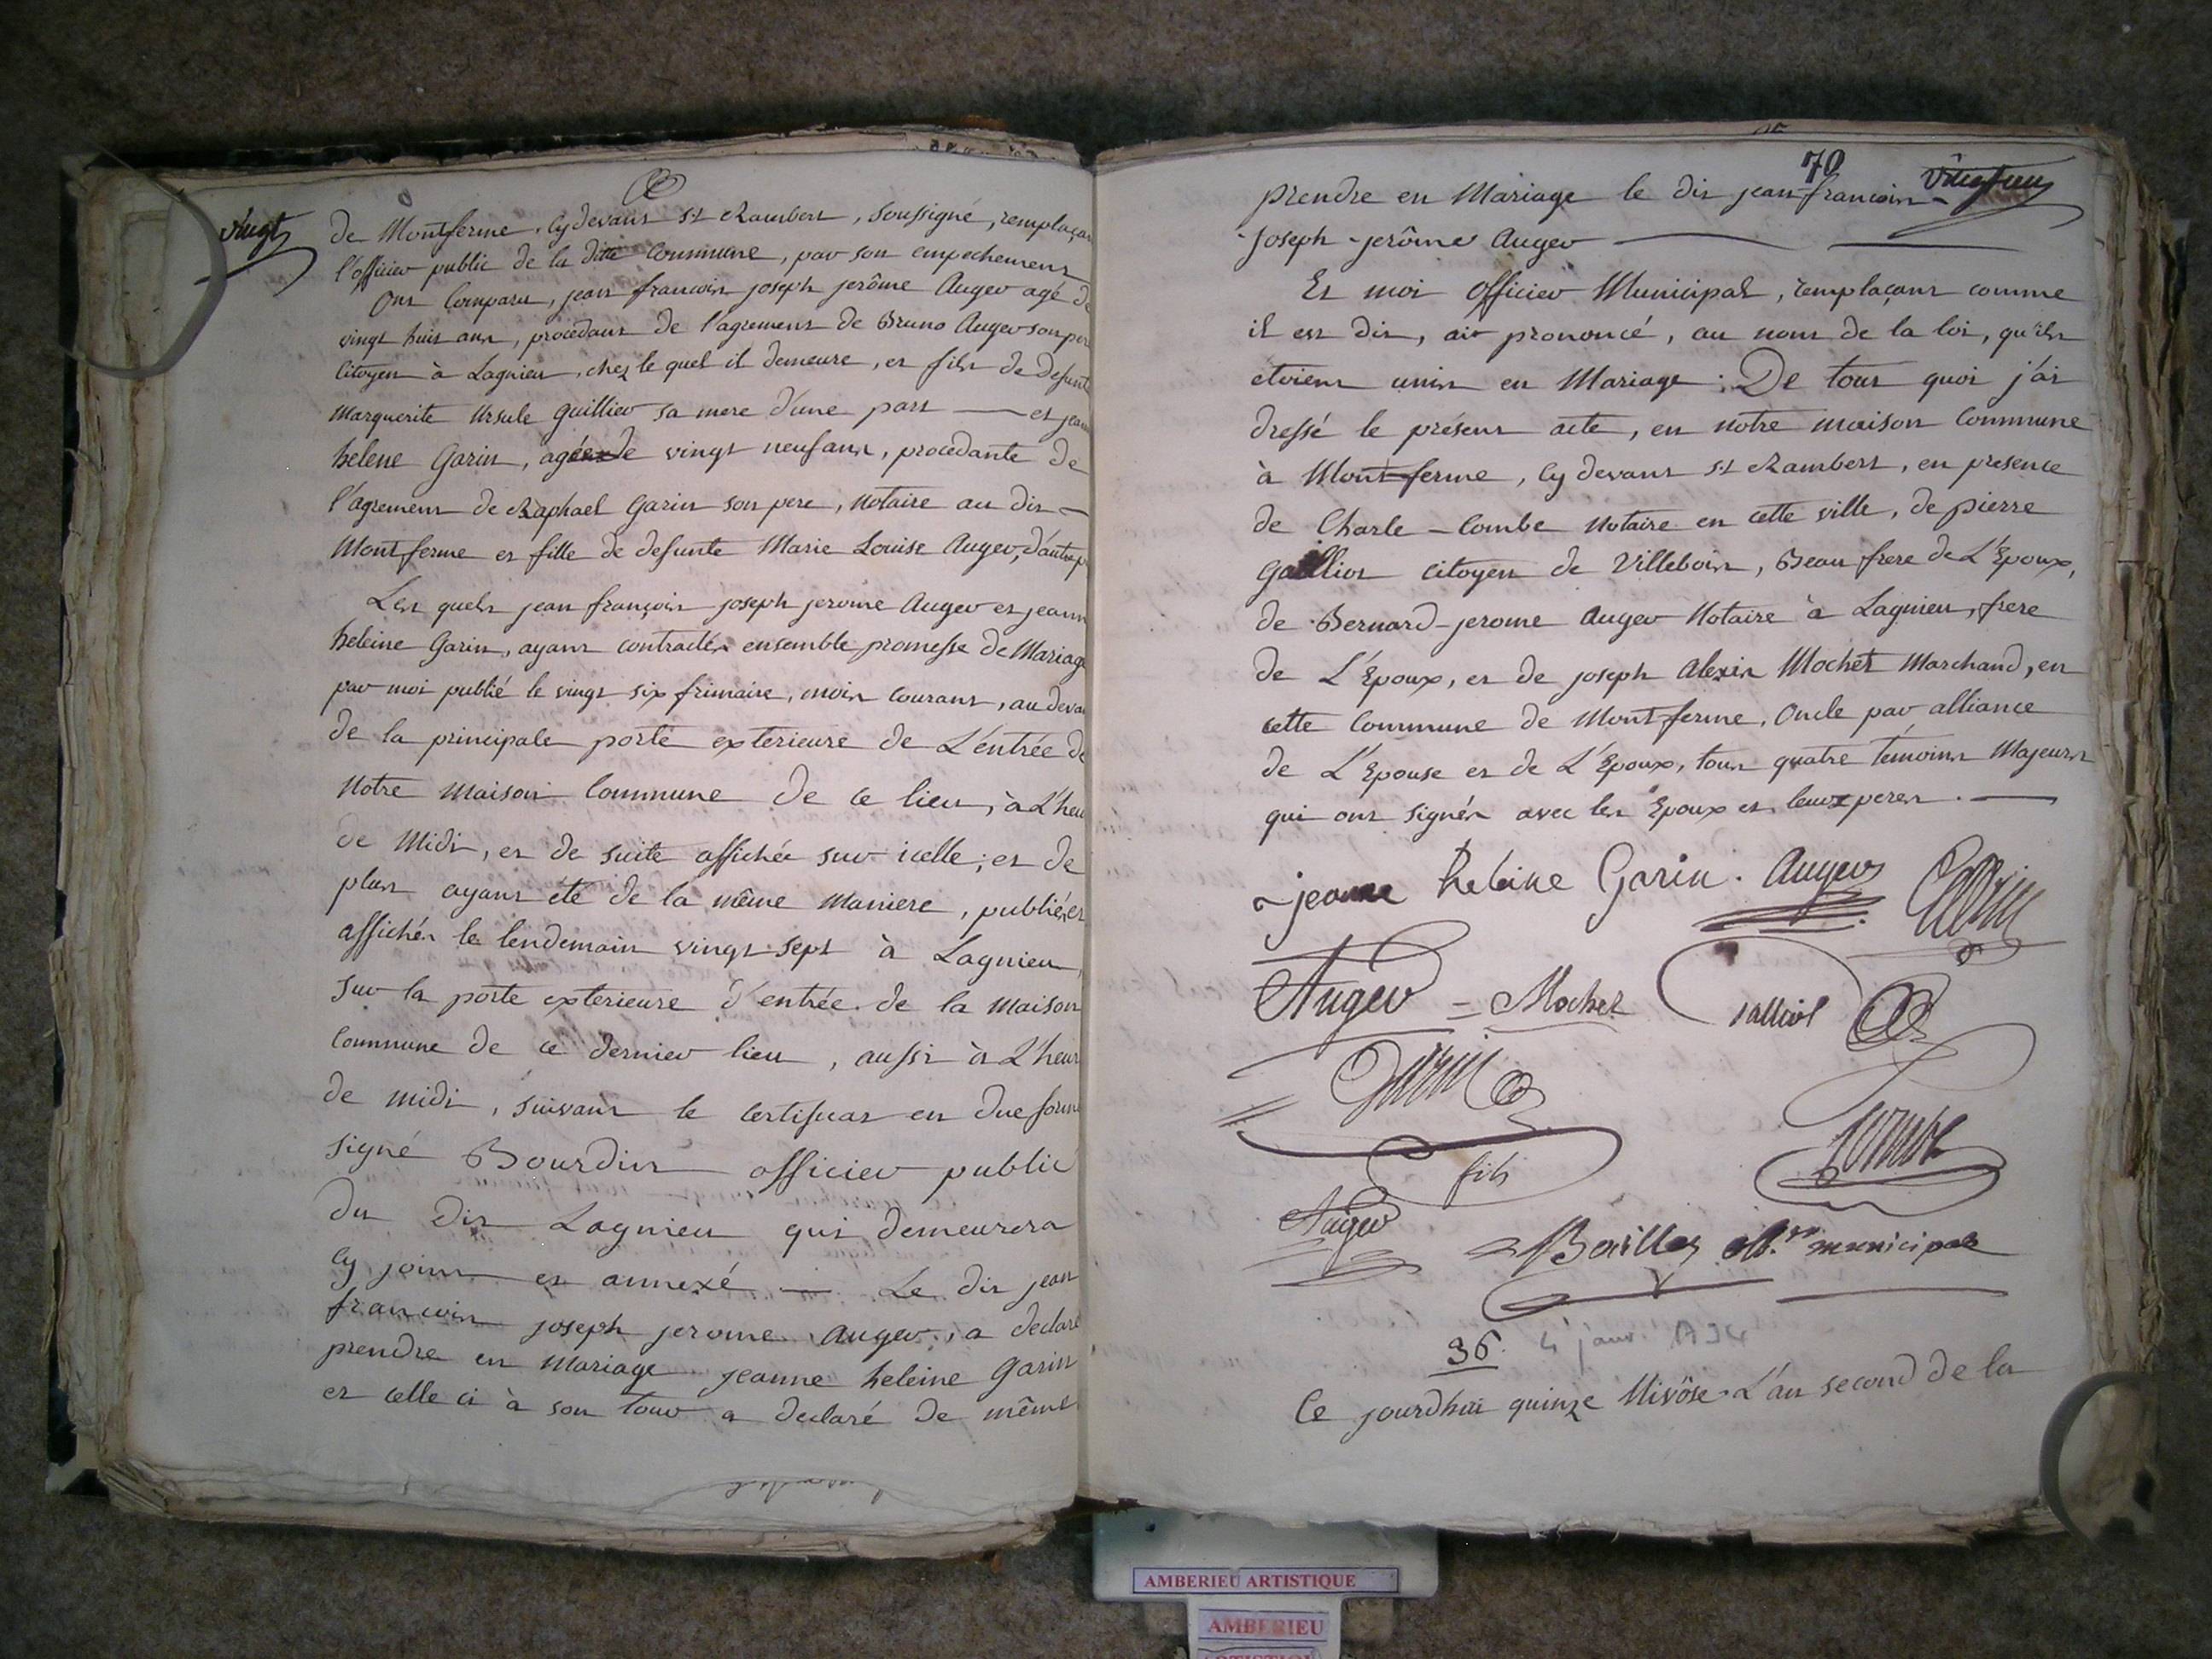 vingt
de Montferme, cy devant St Rambert, soussigné, remplaçan
l'officier public de la dite Commune, par son empechement
Ont Comparu, jean françois joseph jerôme Auger agé de
vingt huit ans, procedant de l'agrement de Bruno Auger son per
Citoyen à Lagnieu, chez le quel il demeure, et fils de defunte
Marguerite Ursule Guillier sa mere d'une part — et jean
helene Garin, agée de vingt neuf ans, procedante de
l'agrement de Raphael Garin son pere, Notaire au dit —
Montferme et fille de defunte Marie Louise Auger, d'autre p
Les quels jean françois joseph jerome Auger et jeann
heleine Garin, ayant contractés ensemble promesse de Mariage
par moi publié le vingt six frimaire, mois courant, au deva
de la principale porte exterieure de L'entrée de
Notre Maison Commune de ce lieu, à L'heu
de Midi, et de suite affichée sur icelle; et de
plus ayant été de la même Maniere, publiés et
affichés le lendemain vingt sept à Lagnieu,
sur la porte exterieure d'entrée de la Maison
Commune de ce dernier lieu, aussi à L'heur
de midi, suivant le Certificat en due forme
signé Bourdin officier public
du dit Lagnieu qui demeurera
cy joint et annexé — Le dit jean
francois joseph jerome Auger, a declaré
prendre en Mariage jeanne heleine Garin
et celle ci à son tour a declaré de même
70
vingt un
prendre en Mariage le dit jean-francois-
-joseph-jerôme Auger —
Et moi Officier Municipal, remplaçant comme
il est dit, ait prononcé, au nom de la loi, qu'ils
etoient unis en Mariage: De tout quoi j'ai
dressé le présent acte, en notre maison Commune
à Montferme, cy devant St Rambert, en presence
de Charle-Combe Notaire en cette ville, de pierre
Galliot citoyen de Villebois, Beau frere de L'Epoux,
de Bernard-jerome Auger Notaire à Lagnieu, frere
de L'Epoux, et de joseph Alexis Mochet Marchand, en
cette Commune de Montferme, Oncle par alliance
de L'Epouse et de L'Epoux, tous quatre temoins Majeurs
qui ont signés avec les Epoux et leurs peres. —
jeanne heleine Garin. Auger Garin
Auger = Mochet Galliot
Garin
fils
Combe
Auger
Baillod off.er municipal
36. 4 janv. 1794
Ce jourdhui quinze Nivôse L'an second de la
AMBERIEU ARTISTIQUE
AMBERIEU
ARTISTIQUE